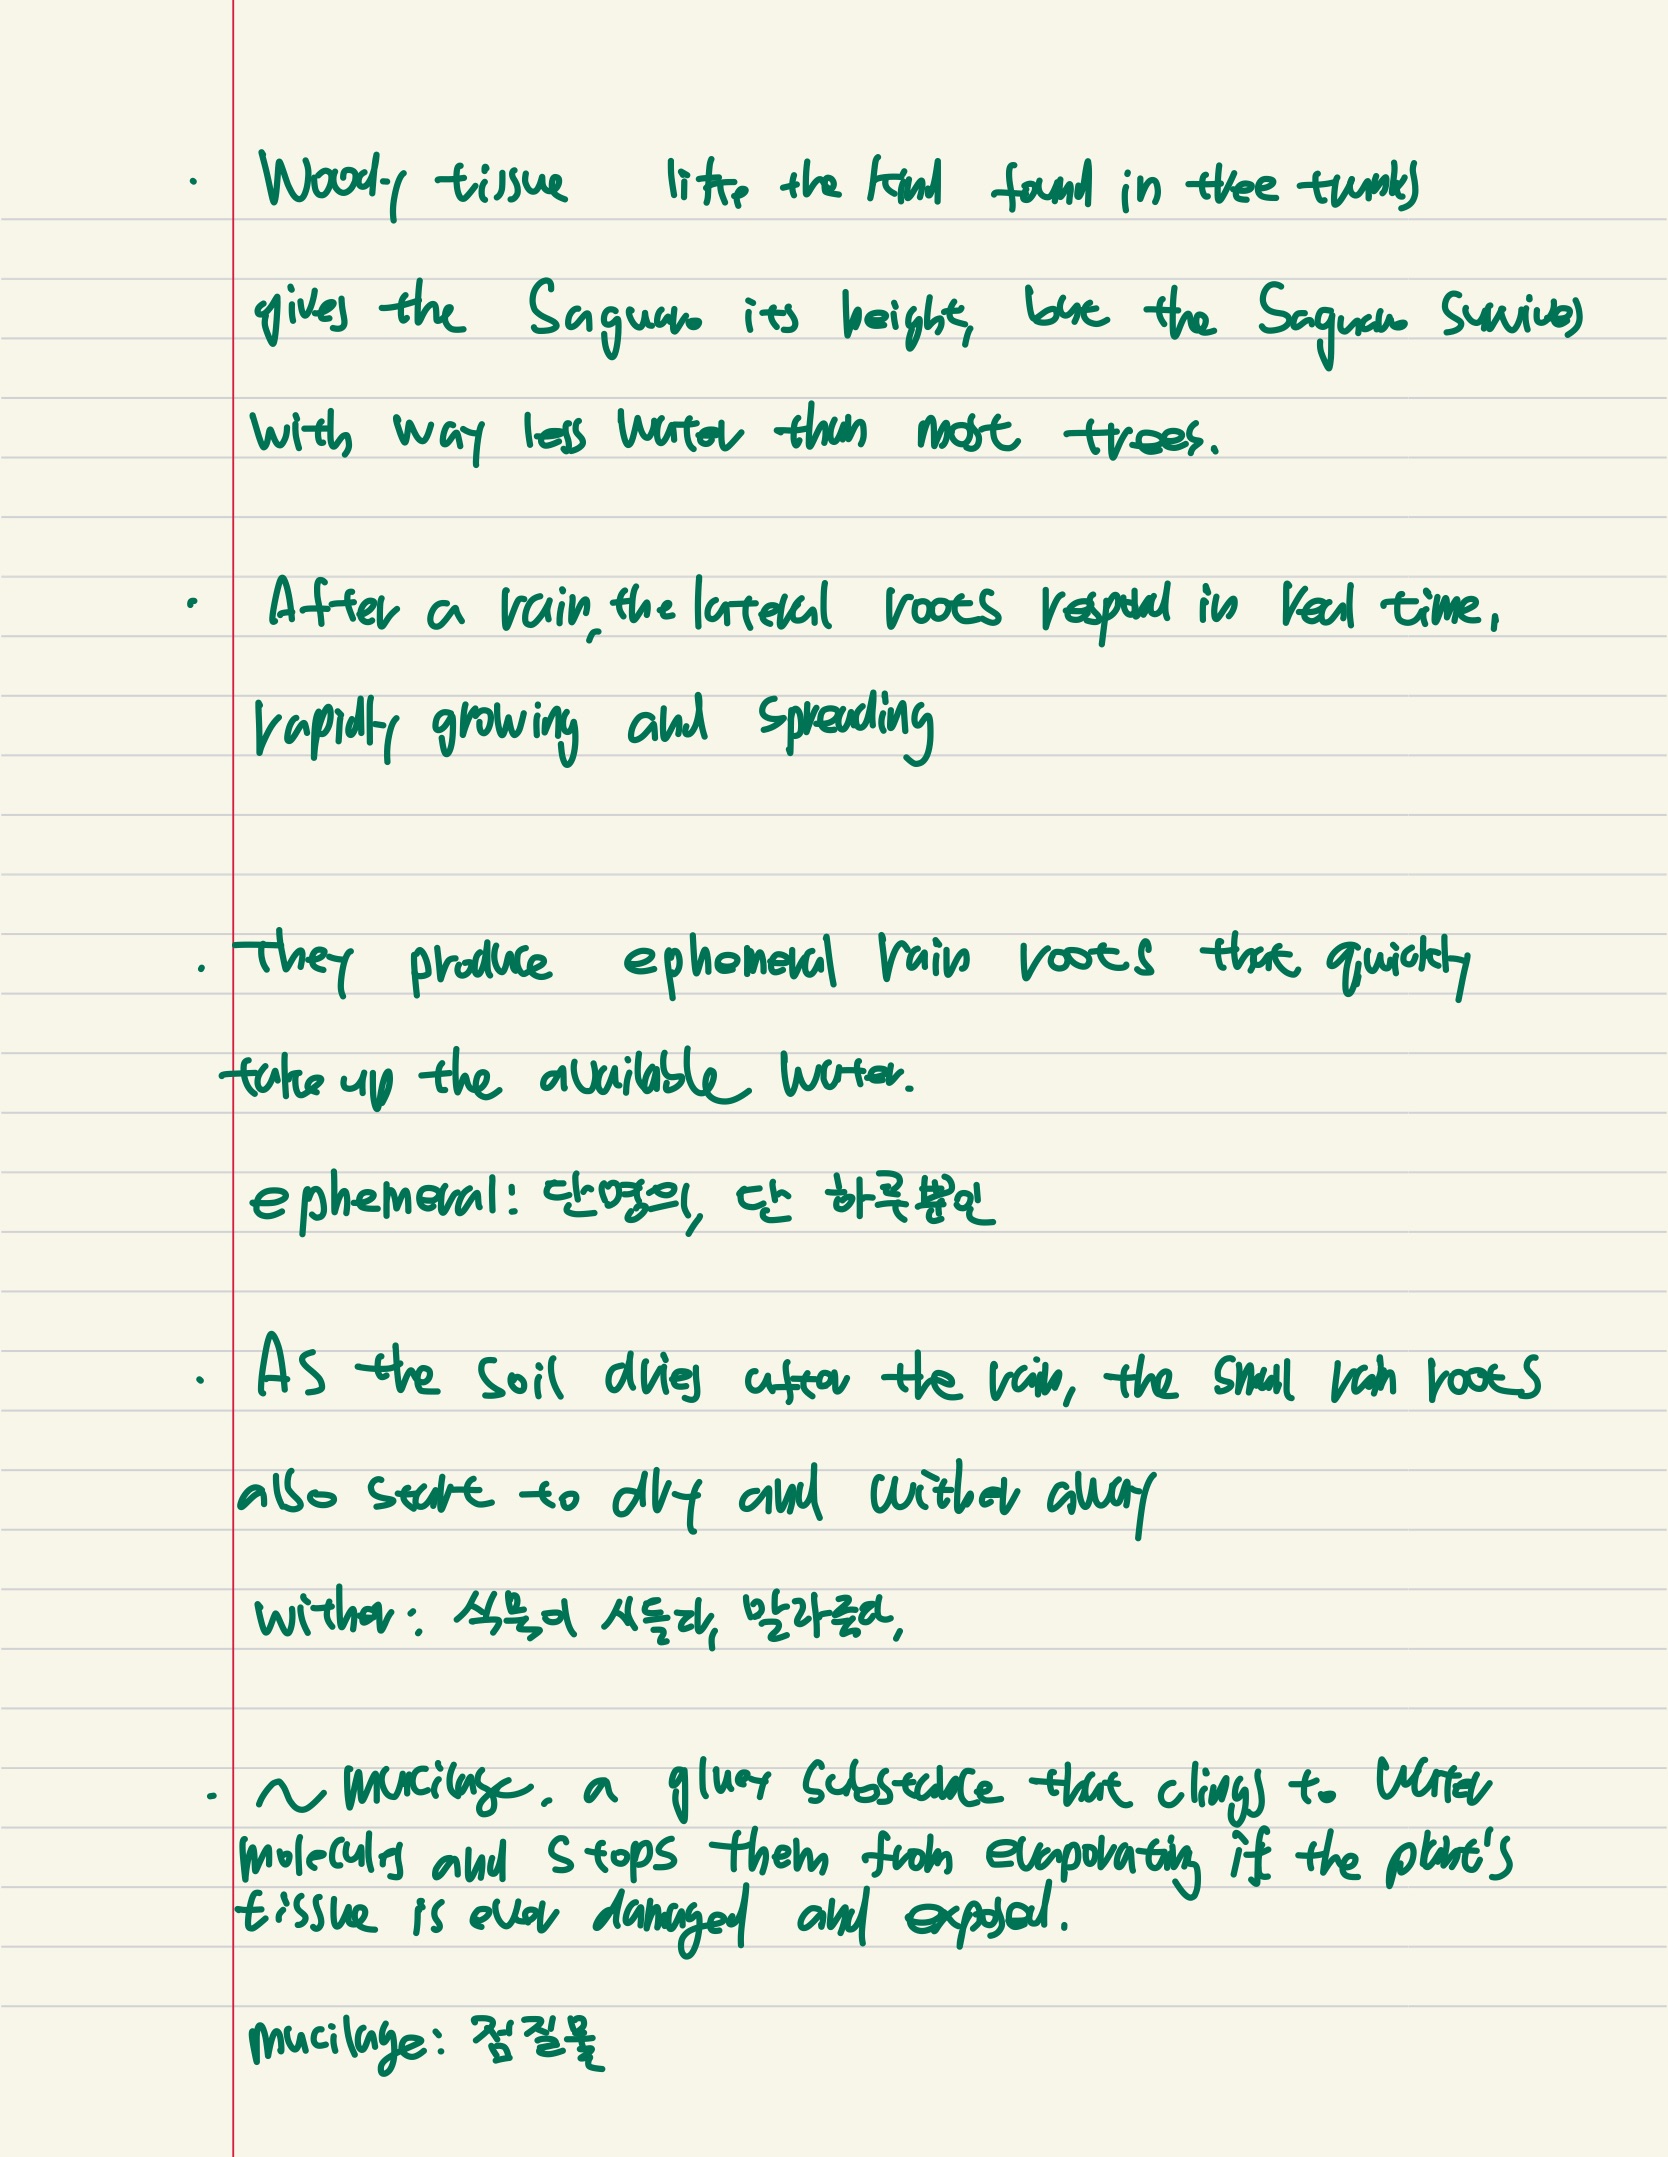 · Woody tissue like the kind found in thee trunks
gives the Saguaro its height, but the Saguaro survives
with way less water than most trees.
· After a rain, the lateral roots respond in real time,
rapidly growing and spreading
· They produce ephemeral rain roots that quickly
take up the available water.
ephemeral: 단명의, 단 하루뿐인
· As the soil dries after the rain, the small rain roots
also start to dry and wither away
wither: 식물이 시들다, 말라죽다,
· ~ mucilage. a gluey substance that clings to water
molecules and stops them from evaporating if the plant's
tissue is ever damaged and exposed.
mucilage: 점질물